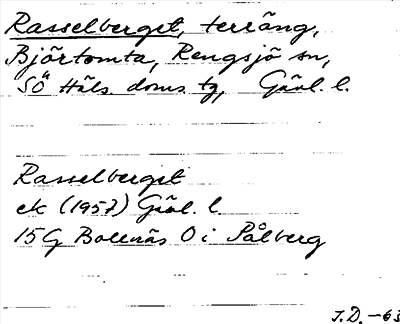 Rasselberget, terräng,
Björtomta, Rengsjö sn,
SÖ Häls. doms. tg, Gävl. l.
Rasselberget
ek (1957) Gävl. l.
15G Bollnäs O i Pålberg
J.D. -63